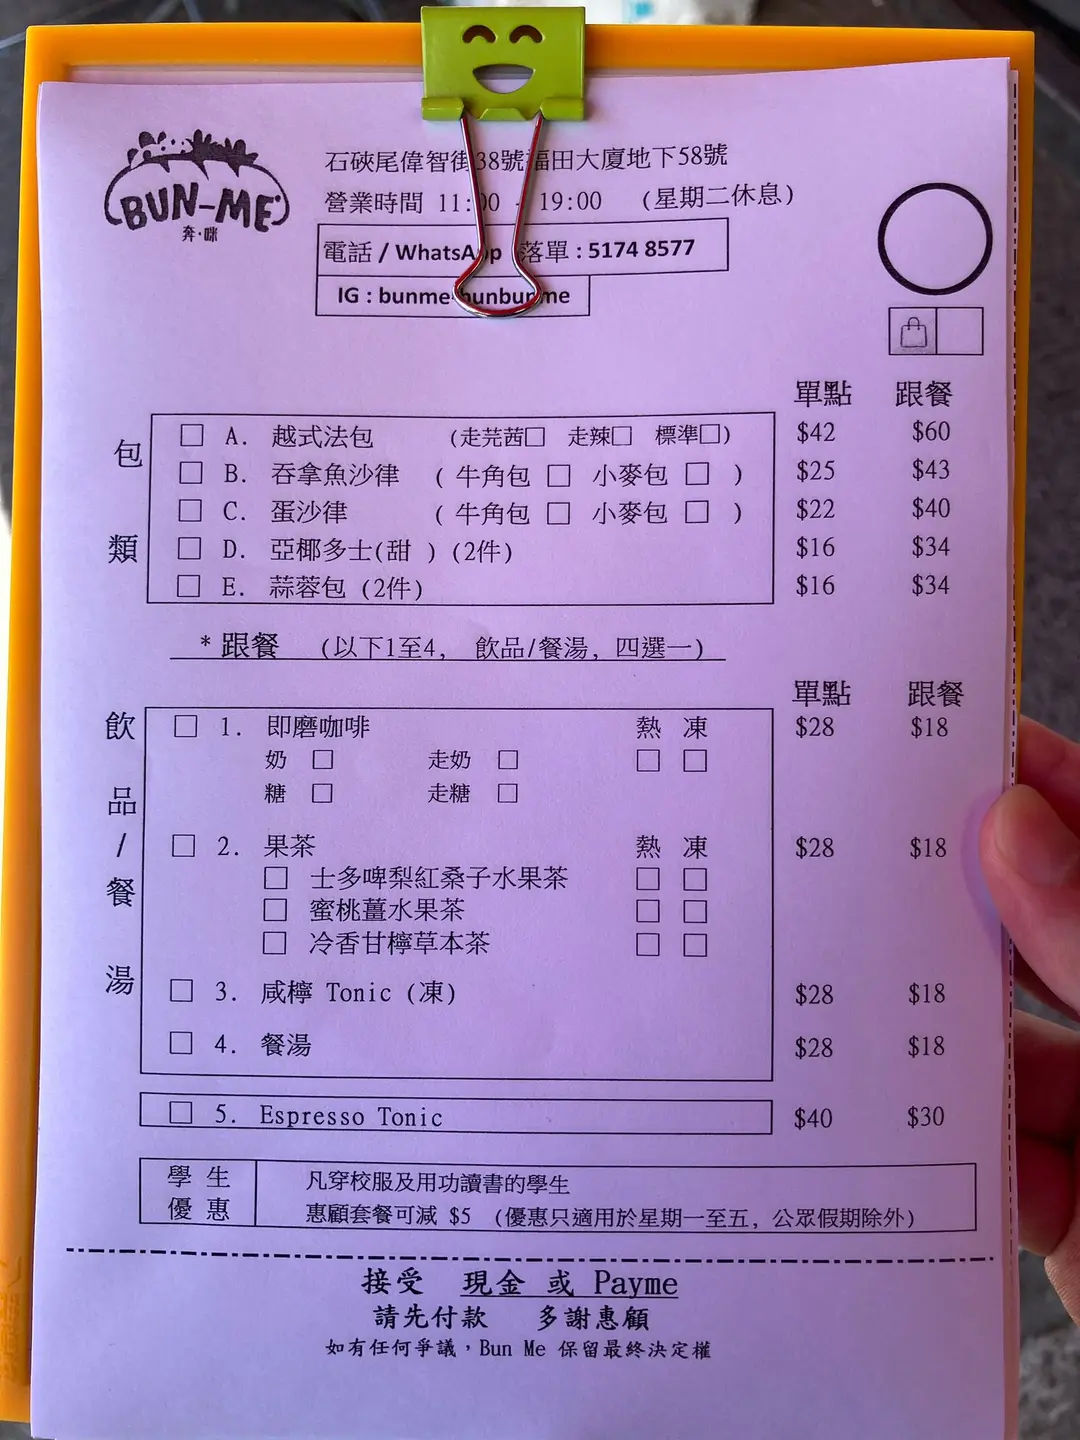 BUN-ME
奔·咪
石硤尾偉智街38號福田大廈地下58號
營業時間 11:00 - 19:00 (星期二休息)
電話 / WhatsApp 落單 : 5174 8577
IG : bunme bunbunme
單點 跟餐
包類
□ A. 越式法包 (走芫茜□ 走辣□ 標準□) $42 $60
□ B. 吞拿魚沙律 ( 牛角包 □ 小麥包 □ ) $25 $43
□ C. 蛋沙律 ( 牛角包 □ 小麥包 □ ) $22 $40
□ D. 亞椰多士(甜 ) (2件) $16 $34
□ E. 蒜蓉包 (2件) $16 $34
* 跟餐 (以下1至4, 飲品/餐湯, 四選一)
單點 跟餐
飲品/餐湯
□ 1. 即磨咖啡 熱 凍 $28 $18
奶 □ 走奶 □ □ □
糖 □ 走糖 □
□ 2. 果茶 熱 凍 $28 $18
□ 士多啤梨紅桑子水果茶 □ □
□ 蜜桃薑水果茶 □ □
□ 冷香甘檸草本茶 □ □
□ 3. 咸檸 Tonic (凍) $28 $18
□ 4. 餐湯 $28 $18
□ 5. Espresso Tonic $40 $30
學生優惠
凡穿校服及用功讀書的學生
惠顧套餐可減 $5 (優惠只適用於星期一至五, 公眾假期除外)
接受 現金 或 Payme
請先付款 多謝惠顧
如有任何爭議，Bun Me 保留最終決定權